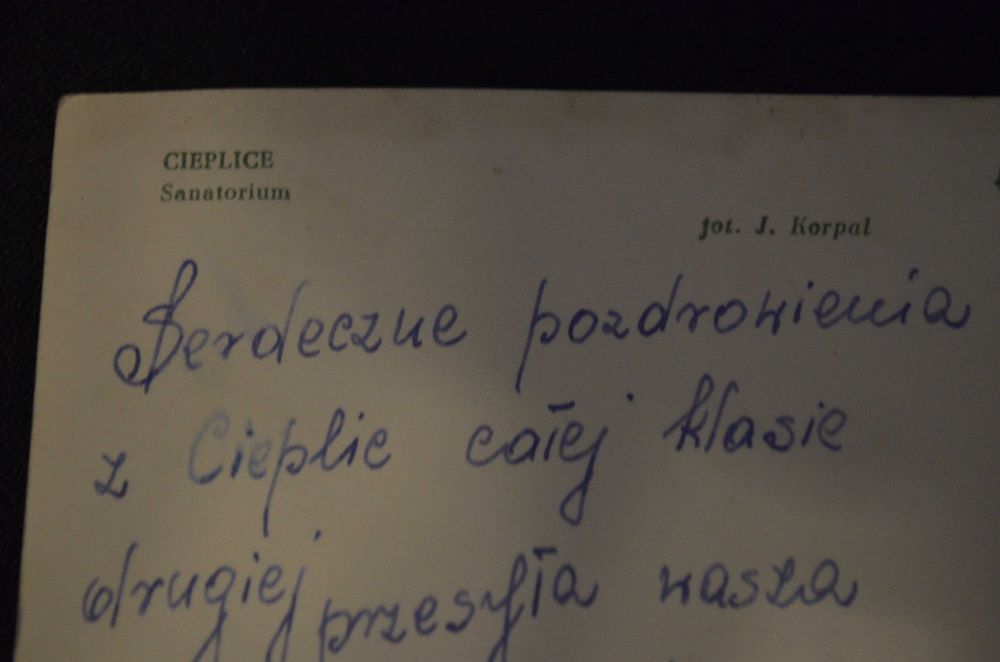 CIEPLICE
Sanatorium
fot. J. Korpal
Serdeczne pozdrowienia
z Cieplic całej klasie
drugiej przesyła wasza